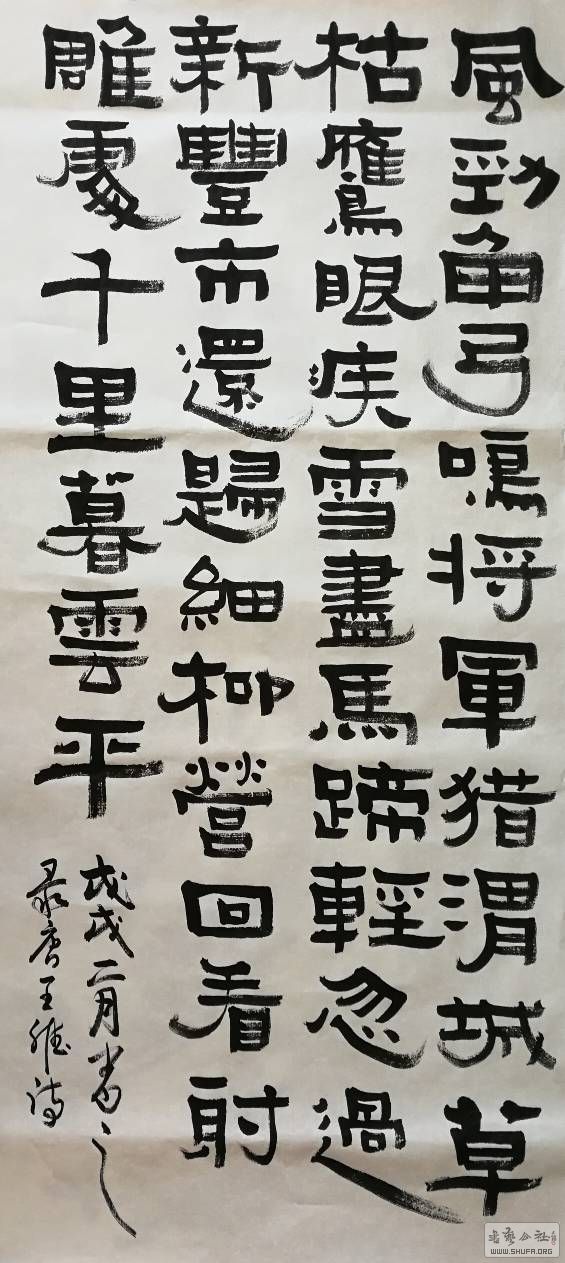 風勁角弓鳴将軍猎渭城草
枯鷹眼疾雪盡馬蹄輕忽過
新豐市還歸細柳營回看射
雕處千里暮雲平
戊戌二月書之
录唐王維诗
WWW.SHUFA.ORG